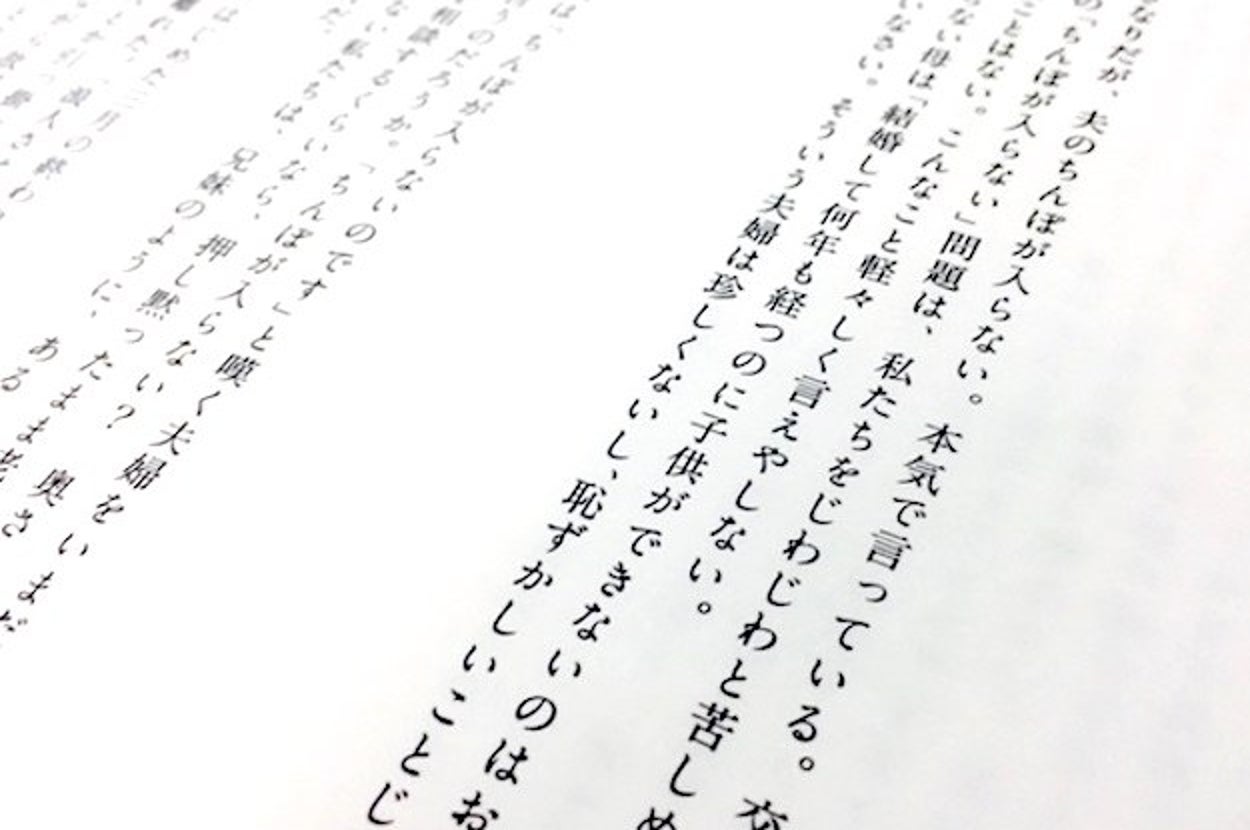 なりだが、夫のちんぽが入らない。本気で言っている。交
の「ちんぽが入らない」問題は、私たちをじわじわと苦しめ
ことはない。こんなこと軽々しく言えやしない。
ない母は「結婚して何年も経つのに子供ができないのはお
いなさい。そういう夫婦は珍しくないし、恥ずかしいことじ
は、ちんぽが入らないのです」と嘆く夫婦をいまだ
うのだろうか。「ちんぽが入らない？　奥さ
相談するくらいなら、押し黙ったまま老
ない私たちは、兄妹のように、ある
はじめた三月の終わり